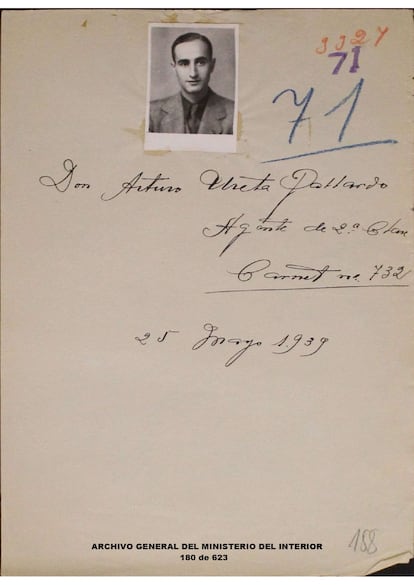 3327
71
71
Don Arturo Ureta Gallardo
Agente de 2ª Clase
Carnet nº. 732
25 Mayo 1.939
188
ARCHIVO GENERAL DEL MINISTERIO DEL INTERIOR
180 de 623